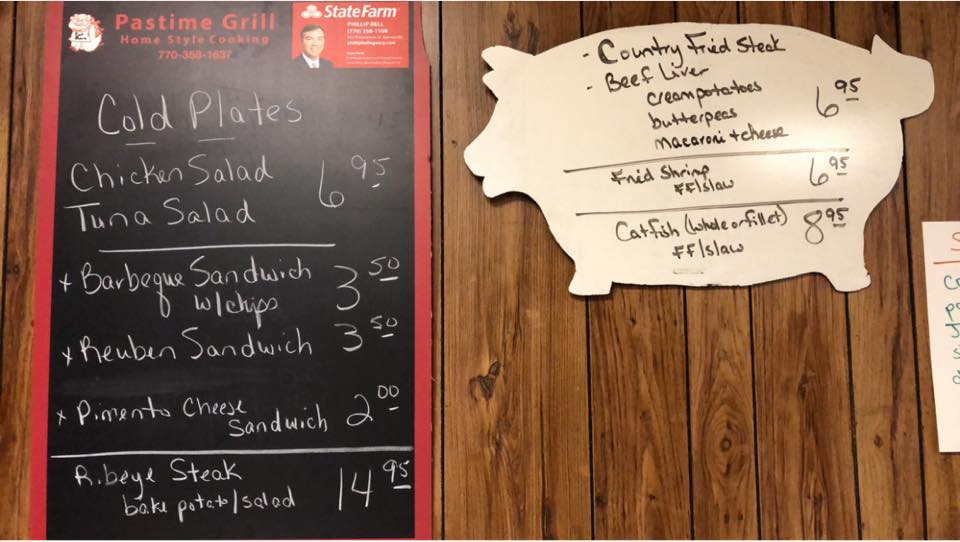 Pastime Grill
Home Style Cooking
770-358-1637
State Farm
PHILLIP BELL
Cold Plates
Chicken Salad 6 95
Tuna Salad
x Barbeque Sandwich 3 50
w/chips
x Reuben Sandwich 3 50
x Pimento Cheese
Sandwich 2 00
Ribeye Steak 14 95
bake potato/salad
- Country Fried Steak
- Beef Liver
creampotatoes 6 95
butterpeas
macaroni + cheese
Fried Shrimp 6 95
FF/slaw
Catfish (whole or fillet) 8 95
FF/slaw